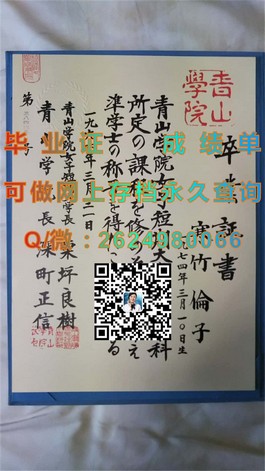 青山
學院
卒業証書
寒竹倫子
一九七四年三月一〇日生
青山学院女子短期大学
科
所定の課程を修め
え
準学士の称号を得
る
一九
年三月
二日
青山学院女子短
学長
栗坪良樹
青山学院
院長
深町正信
第
号
毕业证 成绩单
可做网上存档永久查询
Q/微：2624980066